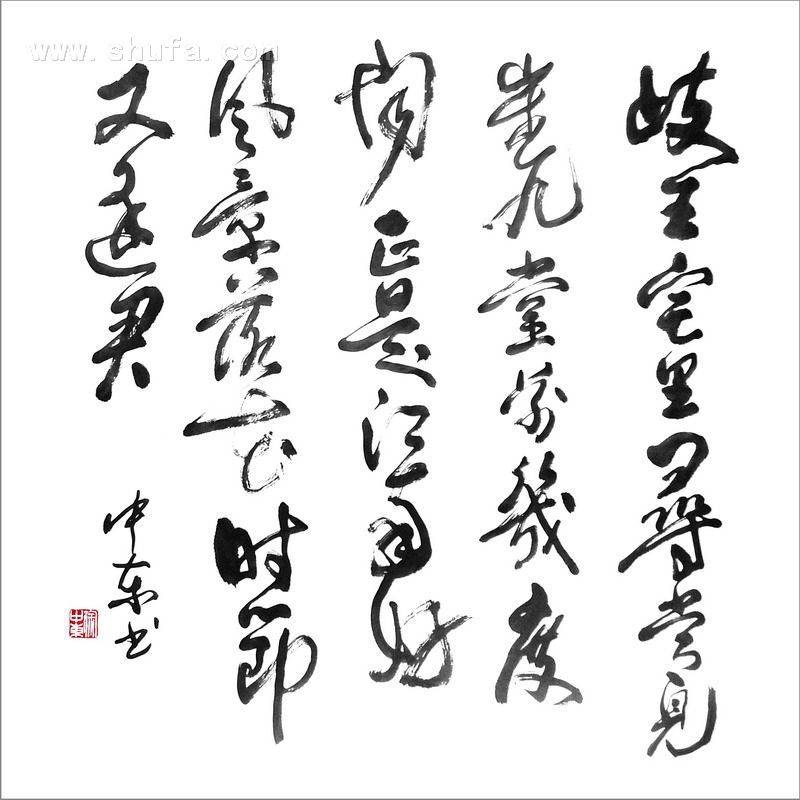 www.shufa.com
岐王宅里尋常見
崔九堂前幾度
聞正是江南好
风景落花时節
又逢君
中东书